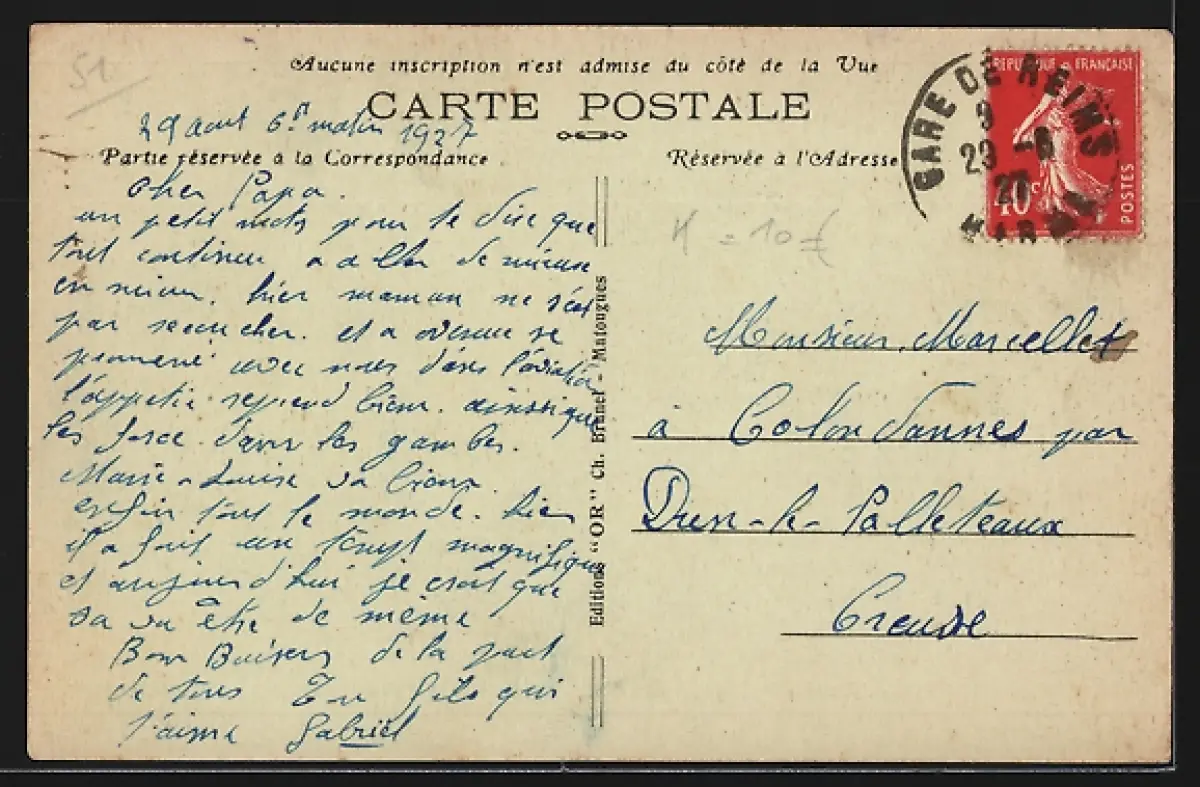 51
Aucune inscription n'est admise du côté de la Vue
CARTE POSTALE
29 aout 6h matin 1927
Partie réservée à la Correspondance
Réservée à l'Adresse
GARE DE REIMS
9
29 -8
27
MARNE
REPUBLIQUE FRANÇAISE
40c
POSTES
Cher Papa.
un petit mots pour te dire que
tout continue a aller de mieux
en mieux. hier maman ne s'est
pas recoucher. et a venue se
promené avec nous dans l'aviation
l'appetie reprend bien. ainssi que
les force dans les gambes.
Marie-Louise va bien
enfin tout le monde. hier
il a fait un temps magnifique
et aujourd'hui je croit que
sa va être de même
Bons Baisers de la part
de tous Ton fils qui
t'aime Gabriel
Editions "OR" Ch. Brunel - Matougues
= 10 €
Monsieur Marcellet
à Colondannes par
Dun-le-Palleteaux
Creuse